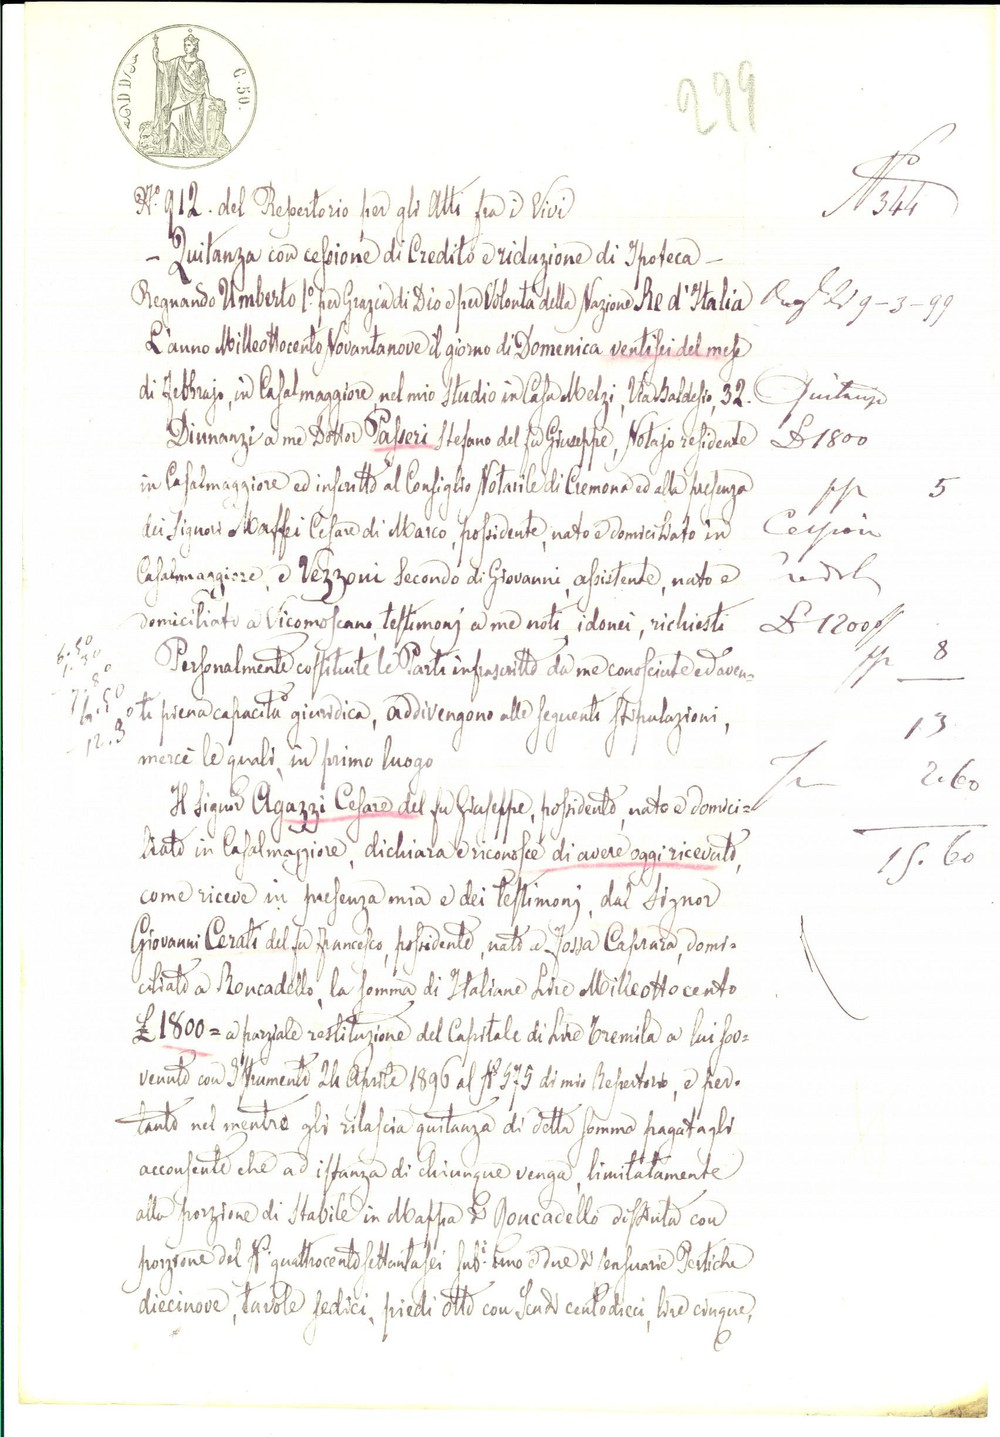 C. 50.
299
N° 344
N.° 912. del Repertorio per gli Atti fra i Vivi
- Quitanza con cessione di Credito e riduzione di Ipoteca -
Regnando Umberto I.° per Grazia di Dio e per Volontà della Nazione Re d'Italia
L'anno Milleottocento Novantanove il giorno di Domenica ventisei del mese
di Febbrajo, in Casalmaggiore, nel mio Studio in Casa Melzi, Via Baldesio, 32.
Dinnanzi a me Dottor Passeri Stefano del fu Giuseppe, Notajo residente
in Casalmaggiore ed inscritto al Consiglio Notarile di Cremona ed alla presenza
dei Signori Maffei Cesare di Marco, possidente, nato e domiciliato in
Casalmaggiore, e Vezzoni Secondo di Giovanni, assistente, nato e
domiciliato a Vicomoscano, testimonj a me noti, idonei, richiesti
Personalmente costituite le Parti infrascritte da me conosciute ed aven-
ti piena capacità giuridica, addivengono alle seguenti stipulazioni,
mercè le quali, in primo luogo
Il Signor Agazzi Cesare del fu Giuseppe, possidente, nato e domici-
liato in Casalmaggiore, dichiara e riconosce di avere oggi ricevuto,
come riceve in presenza mia e dei testimonj, dal Signor
Giovanni Cerati del fu Francesco, possidente, nato a Fossa Caprara, domi-
ciliato a Roncadello, la somma di Italiane Lire Milleottocento
£ 1800 = a parziale restituzione del Capitale di Lire Tremila a lui sov-
venuto con Istrumento 24 Aprile 1896 al N° 575 di mio Repertorio, e per-
tanto nel mentre gli rilascia quitanza di detta somma pagatagli
acconsente che ad istanza di chiunque venga, limitatamente
alla porzione di Stabile in Mappa di Roncadello distinta con
porzione del N.° quattrocentosettantasei sub.i uno e due di censuarie Pertiche
diecinove, tavole sedici, piedi otto con Scudi centodieci, lire cinque,
9-3-99
Quitanza
£ 1800
5
Cessione
£ 1200
8
13
2.60
15.60